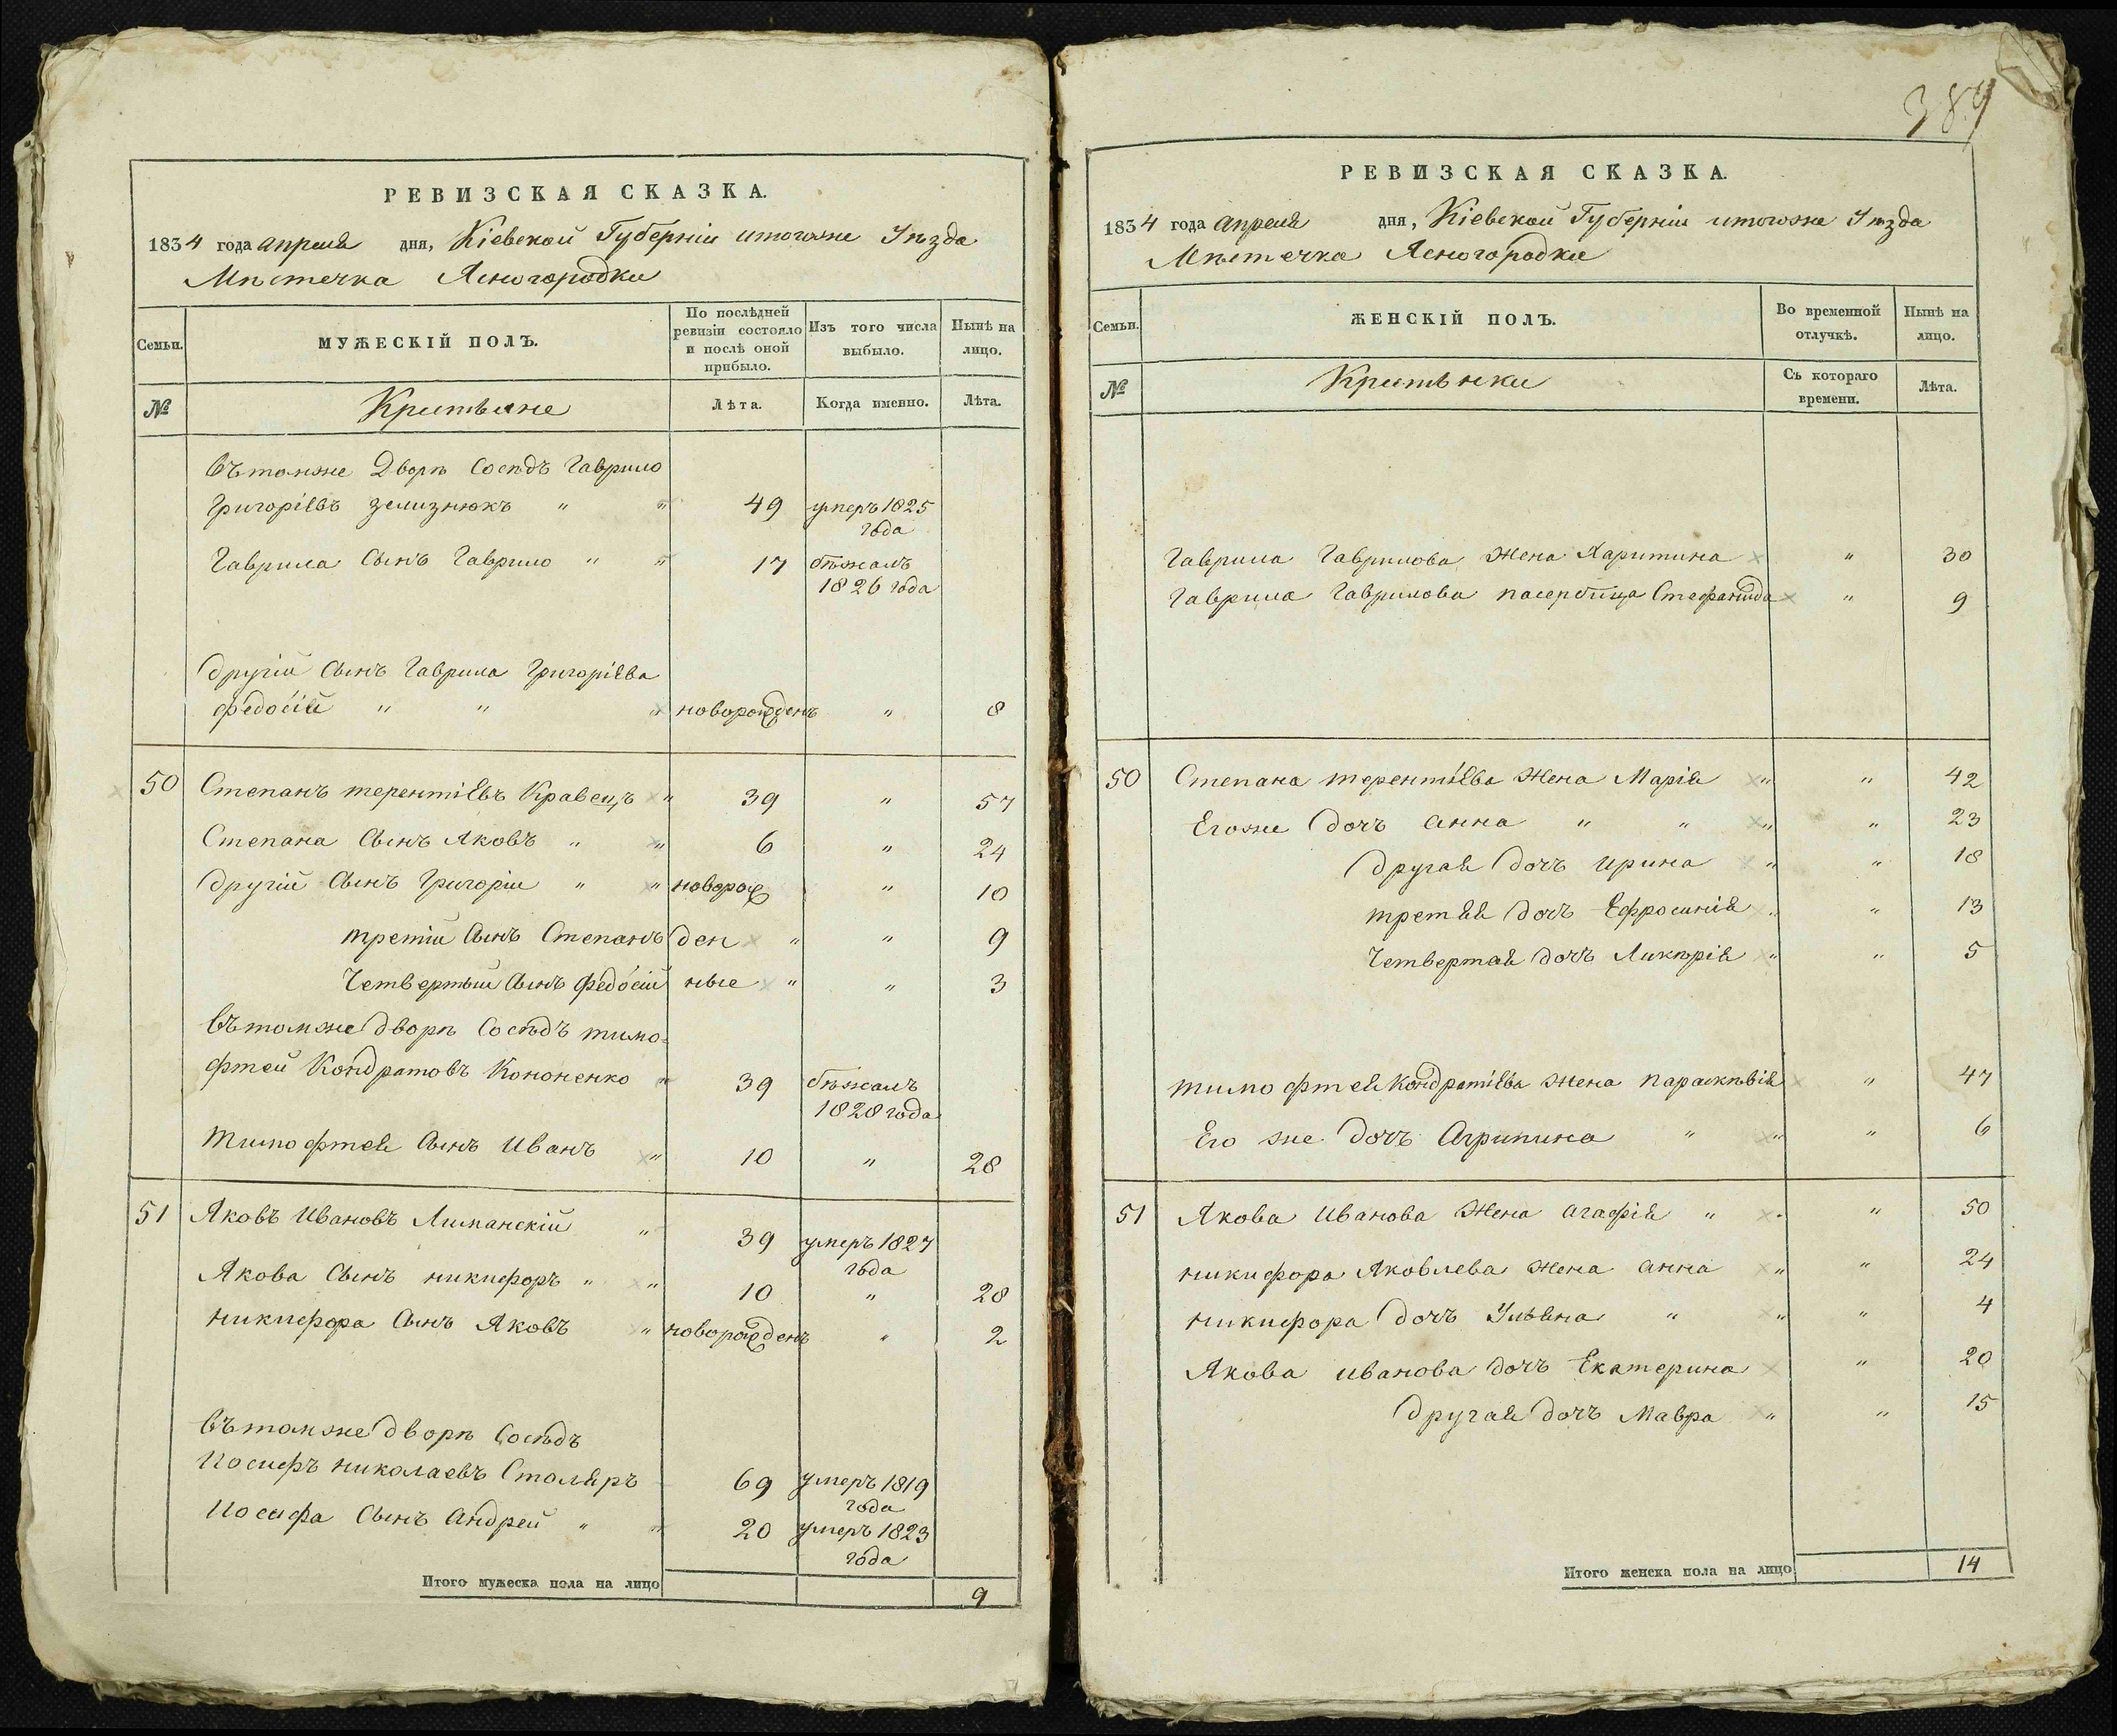 РЕВИЗСКАЯ СКАЗКА.
1834 года апреля дня, Кіевской Губерніи итогоже Уѣзда
Мѣстечка Ясногородки
Семьи.
МУЖЕСКІЙ ПОЛЪ.
По послѣдней ревизіи состояло и послѣ оной прибыло.
Изъ того числа выбыло.
Нынѣ на лицо.
№
Крестьяне
Лѣта.
Когда именно.
Лѣта.
Въ томже Дворѣ Сосѣдъ Гаврило
Григоріевъ Зелизнюкъ " " 49 умеръ 1825 года
Гаврила Сынъ Гаврило " " 17 бѣжалъ 1826 года
Другій Сынъ Гаврила Григоріева
Федосій " " " новорожденъ " 8
50 Степанъ терентіевъ Кравецъ " 39 " 57
Степана Сынъ Яковъ " " 6 " 24
Другій Сынъ Григорій " " новорож " 10
третій Сынъ Степанъ ден " " 9
Четвертый Сынъ Федосій ные " " 3
Въ томже дворѣ Сосѣдъ тимо-
фтей Кондратовъ Кононенко " 39 бѣжалъ 1828 года
Тимофтея Сынъ Иванъ " 10 " 28
51 Яковъ Ивановъ Липанскій " 39 умеръ 1827 года
Якова Сынъ никифоръ " " 10 " 28
никифора Сынъ Яковъ " новорожденъ " 2
Въ томже дворѣ Сосѣдъ
Иосифъ николаевъ Столяръ 69 умеръ 1819 года
Иосифа Сынъ Андрей " " 20 умеръ 1823 года
Итого мужеска пола на лицо 9
389
РЕВИЗСКАЯ СКАЗКА.
1834 года апреля дня, Кіевской Губерніи итогоже Уѣзда
Мѣстечка Ясногородки
Семьи.
ЖЕНСКІЙ ПОЛЪ.
Во временной отлучкѣ.
Нынѣ на лицо.
№
Крестьянки
Съ котораго времени.
Лѣта.
Гаврила Гаврилова Жена Харитина " 30
Гаврила Гаврилова пасербица Стефанида " 9
50 Степана терентіева Жена Марія " " 42
Егоже Дочъ анна " " " " 23
Другая Дочъ ирина " " 18
третья Дочъ Ефросинія " " 13
Четвертая Дочъ Ликѣрія " " 5
тимофтея Кондратіева Жена параскѣвія " 47
Его же Дочъ Агрипина " " " 6
51 Якова Иванова Жена агафія " " " 50
никифора Яковлева Жена анна " " 24
никифора Дочъ Ульяна " " " 4
Якова иванова Дочъ Екатерина " 20
Другая Дочъ Мавра " " 15
Итого женска пола на лицо 14